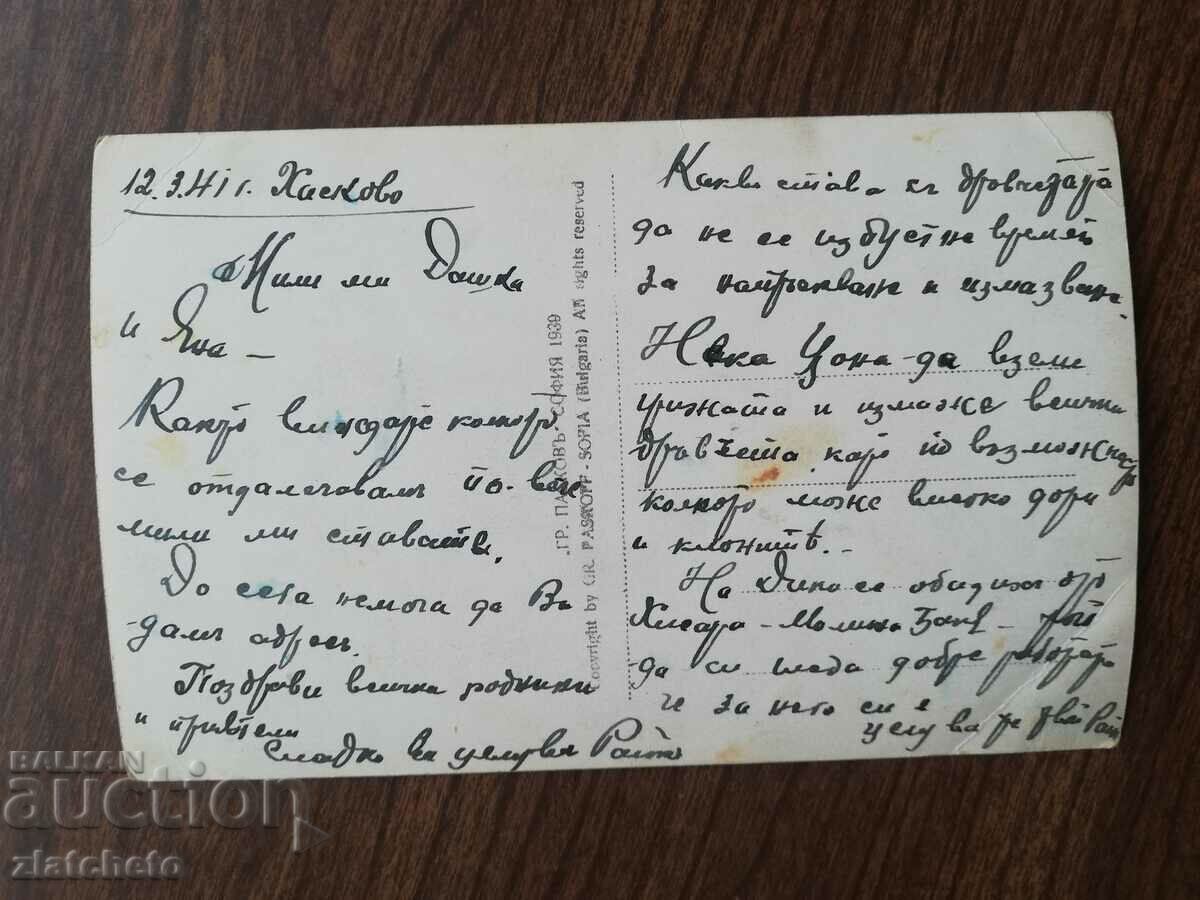 12.3.41 г. Хасково
Мили ми Дашка
и Яна –
Както виждате колкото
се отдалечавамъ по-вече
мили ми ставате.
До сега немога да Ви
дамъ адресъ.
Поздрави всички роднини
и приятели
Сладко ви целува
.ГР. ПАСКОВЪ - СОФИЯ 1939
Copyright by GR. PASKOFF - SOFIA (Bulgaria) All rights reserved
Какво става съ дръвчетата
да не се изпустне времето
за напръскване и измазване.
Нека Цона да вземе
грижата и измаже всички
дръвчета като по възможность
колкото може високо дори
и клонитѣ.
На Дика се обадихъ отъ
Хисаря –
да си гледа добре работата
че за него си е
целува ге
BALKAN
auction
zlatcheto